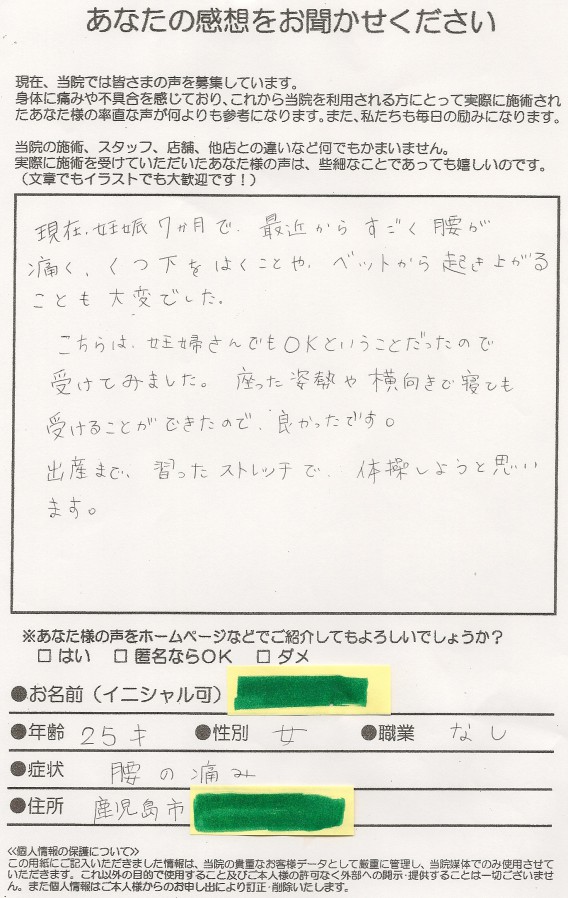 あなたの感想をお聞かせください
現在、当院では皆さまの声を募集しています。
身体に痛みや不具合を感じており、これから当院を利用される方にとって実際に施術され
たあなた様の率直な声が何よりも参考になります。また、私たちも毎日の励みになります。
当院の施術、スタッフ、店舗、他店との違いなど何でもかまいません。
実際に施術を受けていただいたあなた様の声は、些細なことであっても嬉しいのです。
（文章でもイラストでも大歓迎です！）
現在、妊娠7ヵ月で、最近からすごく腰が
痛く、くつ下をはくことや、ベットから起き上がる
ことも大変でした。
こちらは、妊婦さんでもOKということだったので
受けてみました。座った姿勢や横向きで寝ても
受けることができたので、良かったです。
出産まで、習ったストレッチで、体操しようと思い
ます。
※あなた様の声をホームページなどでご紹介してもよろしいでしょうか？
□ はい □ 匿名ならOK □ ダメ
●お名前（イニシャル可）
●年齢 25才 ●性別 女 ●職業 なし
●症状 腰の痛み
●住所 鹿児島市
≪個人情報の保護について≫
この用紙にご記入いただきました情報は、当院の貴重なお客様データとして厳重に管理し、当院媒体でのみ使用させて
いただきます。これ以外の目的で使用すること及びご本人様の許可なく外部への開示・提供することは一切ございませ
ん。また個人情報はご本人様からのお申し出により訂正・削除いたします。